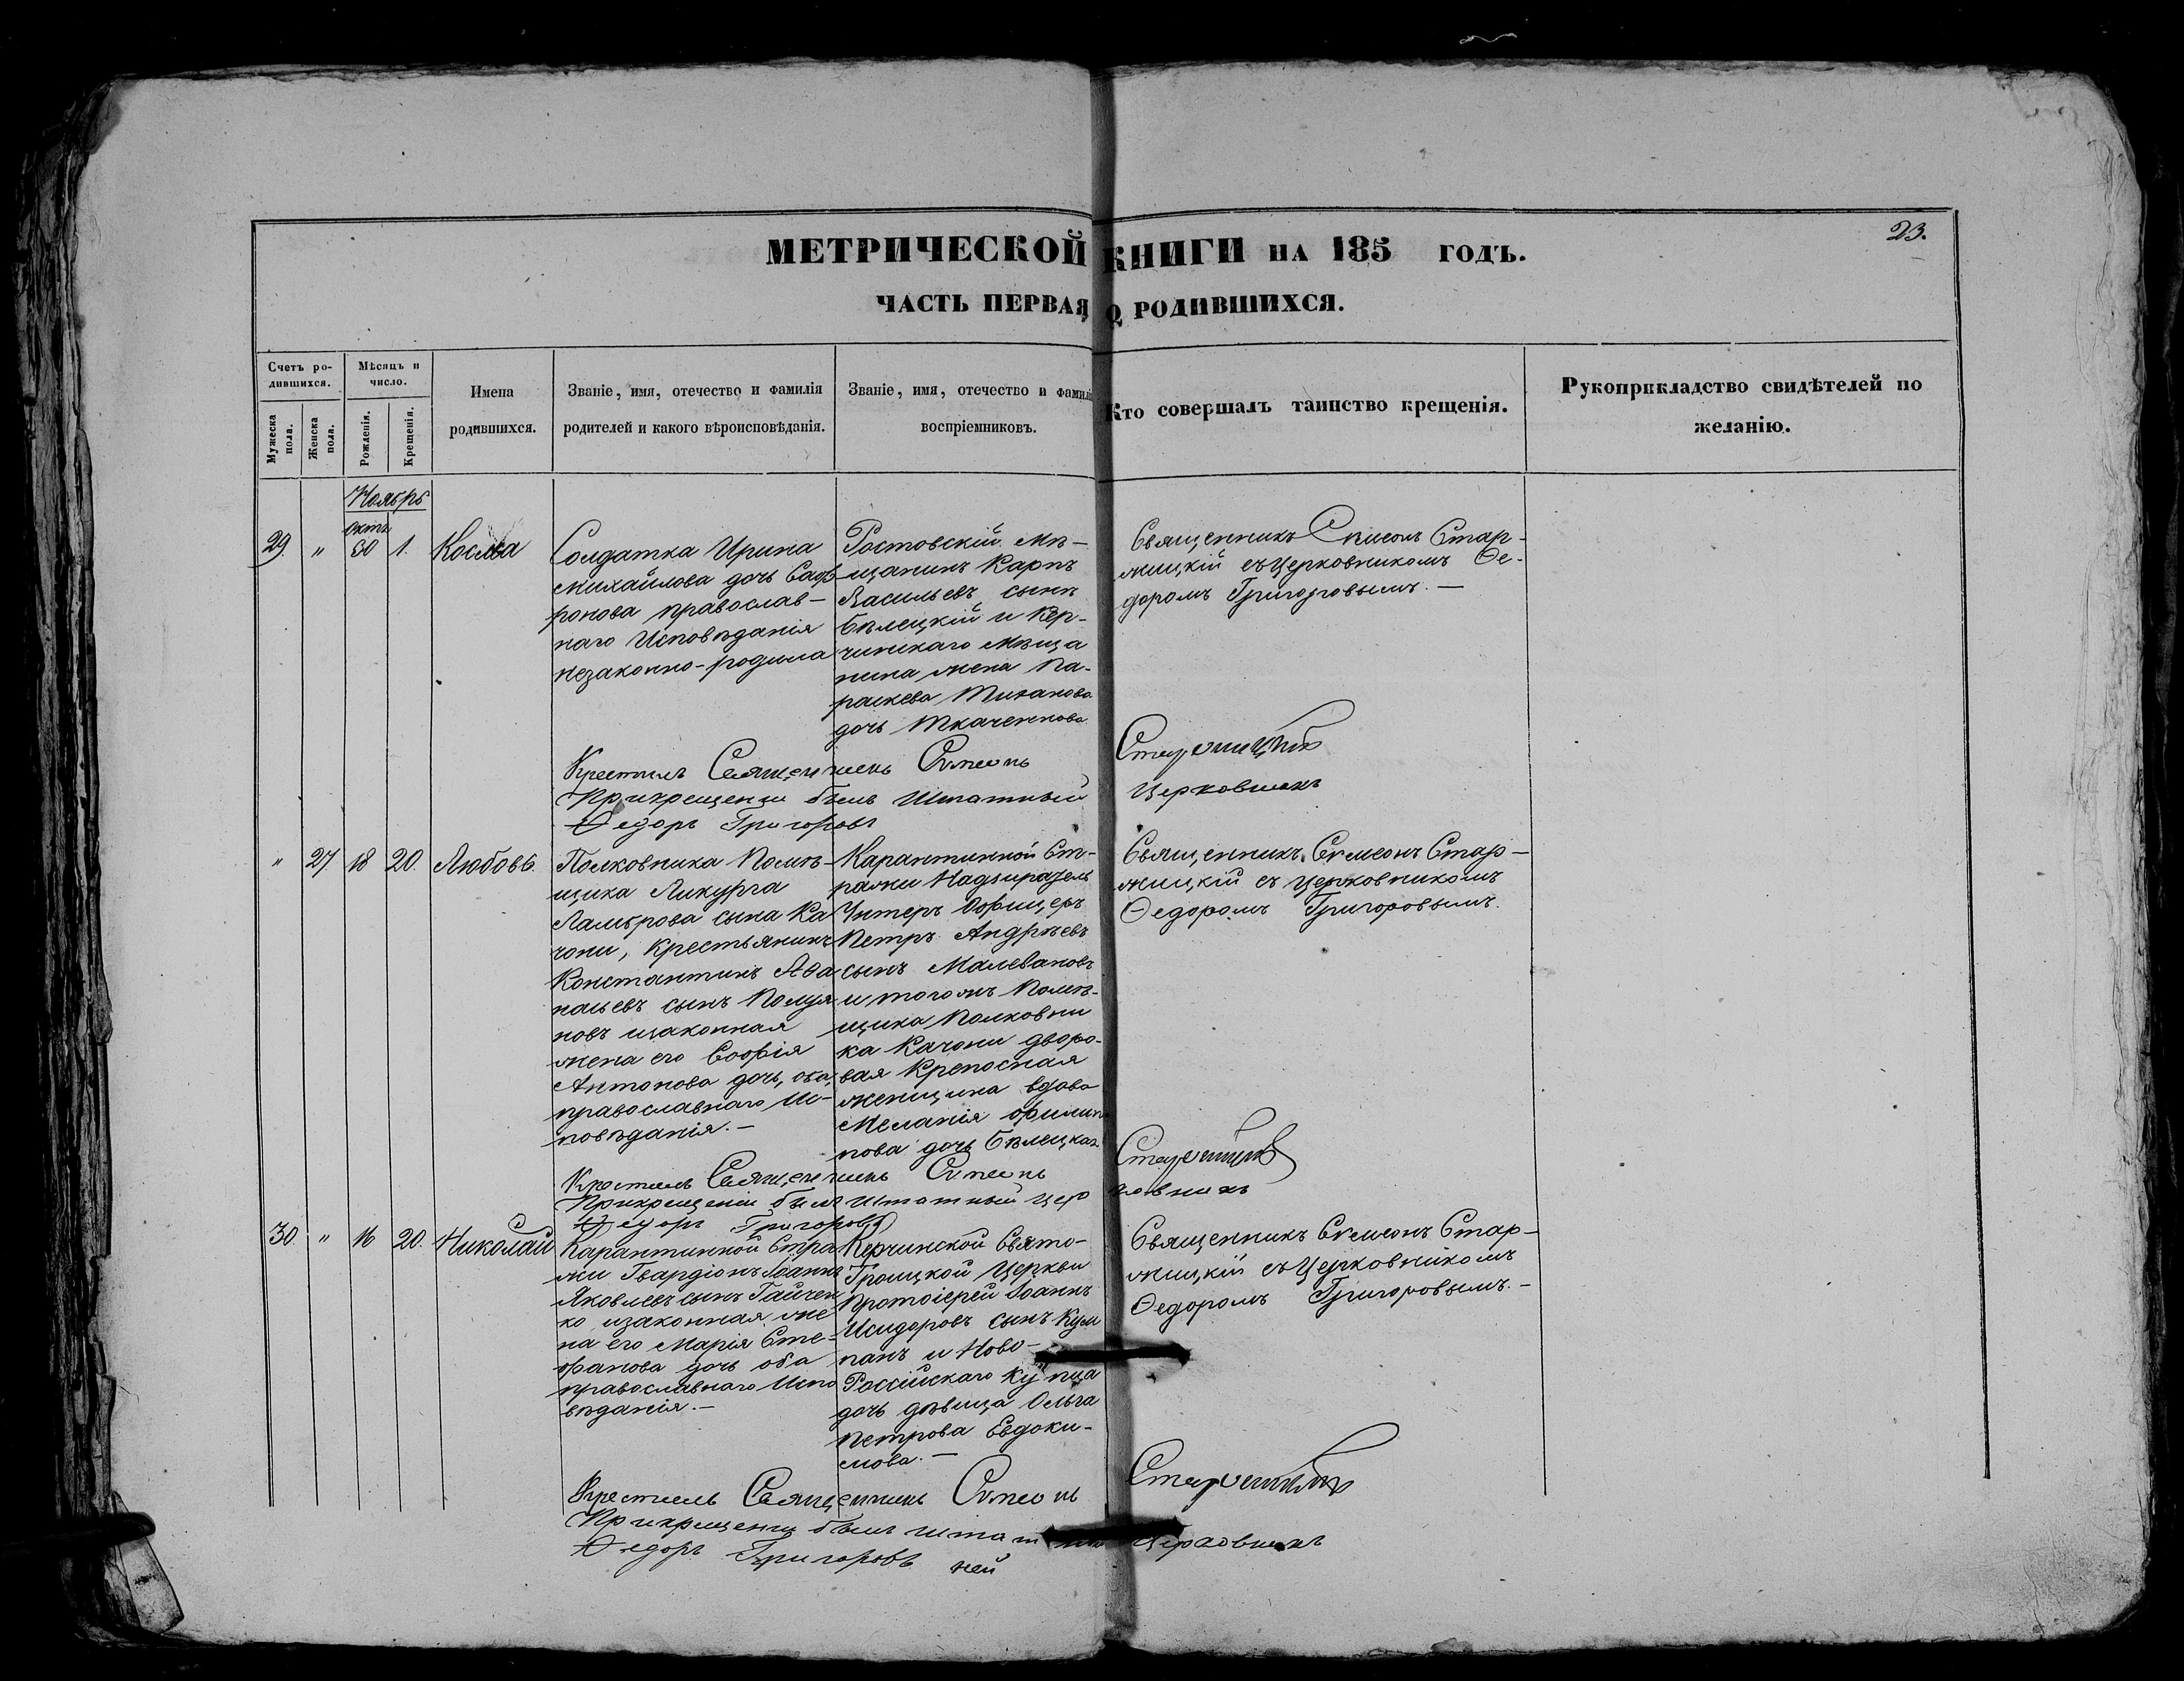 23.
МЕТРИЧЕСКОЙ КНИГИ НА 185 ГОДЪ.
ЧАСТЬ ПЕРВАЯ, О РОДИВШИХСЯ.
Счетъ ро-
дившихся.
Мужеска пола.
Женска пола.
Мѣсяцъ и
число.
Рожденія.
Крещенія.
Имена
родившихся.
Званіе, имя, отечество и фамилія
родителей и какого вѣроисповѣданія.
Званіе, имя, отечество и фамилія
воспріемниковъ.
Кто совершалъ таинство крещенія.
Рукоприкладство свидѣтелей по
желанію.
Ноябрь
29. " Окт. 30 1. Косма
Солдатка Ирина
Михайлова дочь Саф-
ронова православ-
наго Исповѣданія
незаконно-родила
Ростовскій Мѣ-
щанинъ Карпъ
Васильевъ сынъ
Бѣлецкій и Кер-
чинскаго Мѣща
нина жена Па-
раскева
дочь Ткаченкова
Священникъ Симеонъ Стар-
жицкій съ Церковникомъ Ѳе-
доромъ Григоровымъ. —
Крестилъ Священникъ Симеонъ Старжицкій
При крещеніи былъ Штатный Церковникъ
Ѳедоръ Григоровъ
" 27 18 20. Любовь.
Полковника Помѣ-
щика Ликурга
Ламброва сына Ка
чони, Крестьянинъ
Константинъ Аѳа
насьевъ сынъ
новъ изаконная
жена его Софія
Антонова дочь, оба
православнаго Ис-
повѣданія. —
Карантинной Ст-
ражи Надзиратель
Унтеръ Офицеръ
Петръ Андреевъ
сынъ Малевановъ
и тогожъ Помѣ-
щика Полковни
ка Качони дворо-
вая Крепосная
женщина вдова
Меланія Филип
пова дочь Бѣлецкая
Священникъ Симеонъ Стар-
жицкій съ Церковникомъ
Ѳедоромъ Григоровымъ.
Крестилъ Священникъ Симеонъ Старжицкій
При крещеніи былъ штатный церковникъ
Ѳедоръ Григоровъ
30. " 16 20. Николай
Карантинной Стра
жи Гвардіонъ Іоаннъ
Яковлевъ сынъ Гайчен
ко изаконная же
на его Марія Сте-
фанова дочь оба
православнаго Испо
вѣданія. —
Керчинской Свято-
Троицкой Церкви
Протоіерей Іоаннъ
Исидоровъ сынъ Кум
панъ и Ново-
Россійскаго Купца
дочь дѣвица Ольга
Петрова Евдоки-
мова. —
Священникъ Симеонъ Стар-
жицкій съ Церковникомъ
Ѳедоромъ Григоровымъ. —
Крестилъ Священникъ Симеонъ Старжицкій
При крещеніи былъ штатный церковникъ
Ѳедоръ Григоровъ